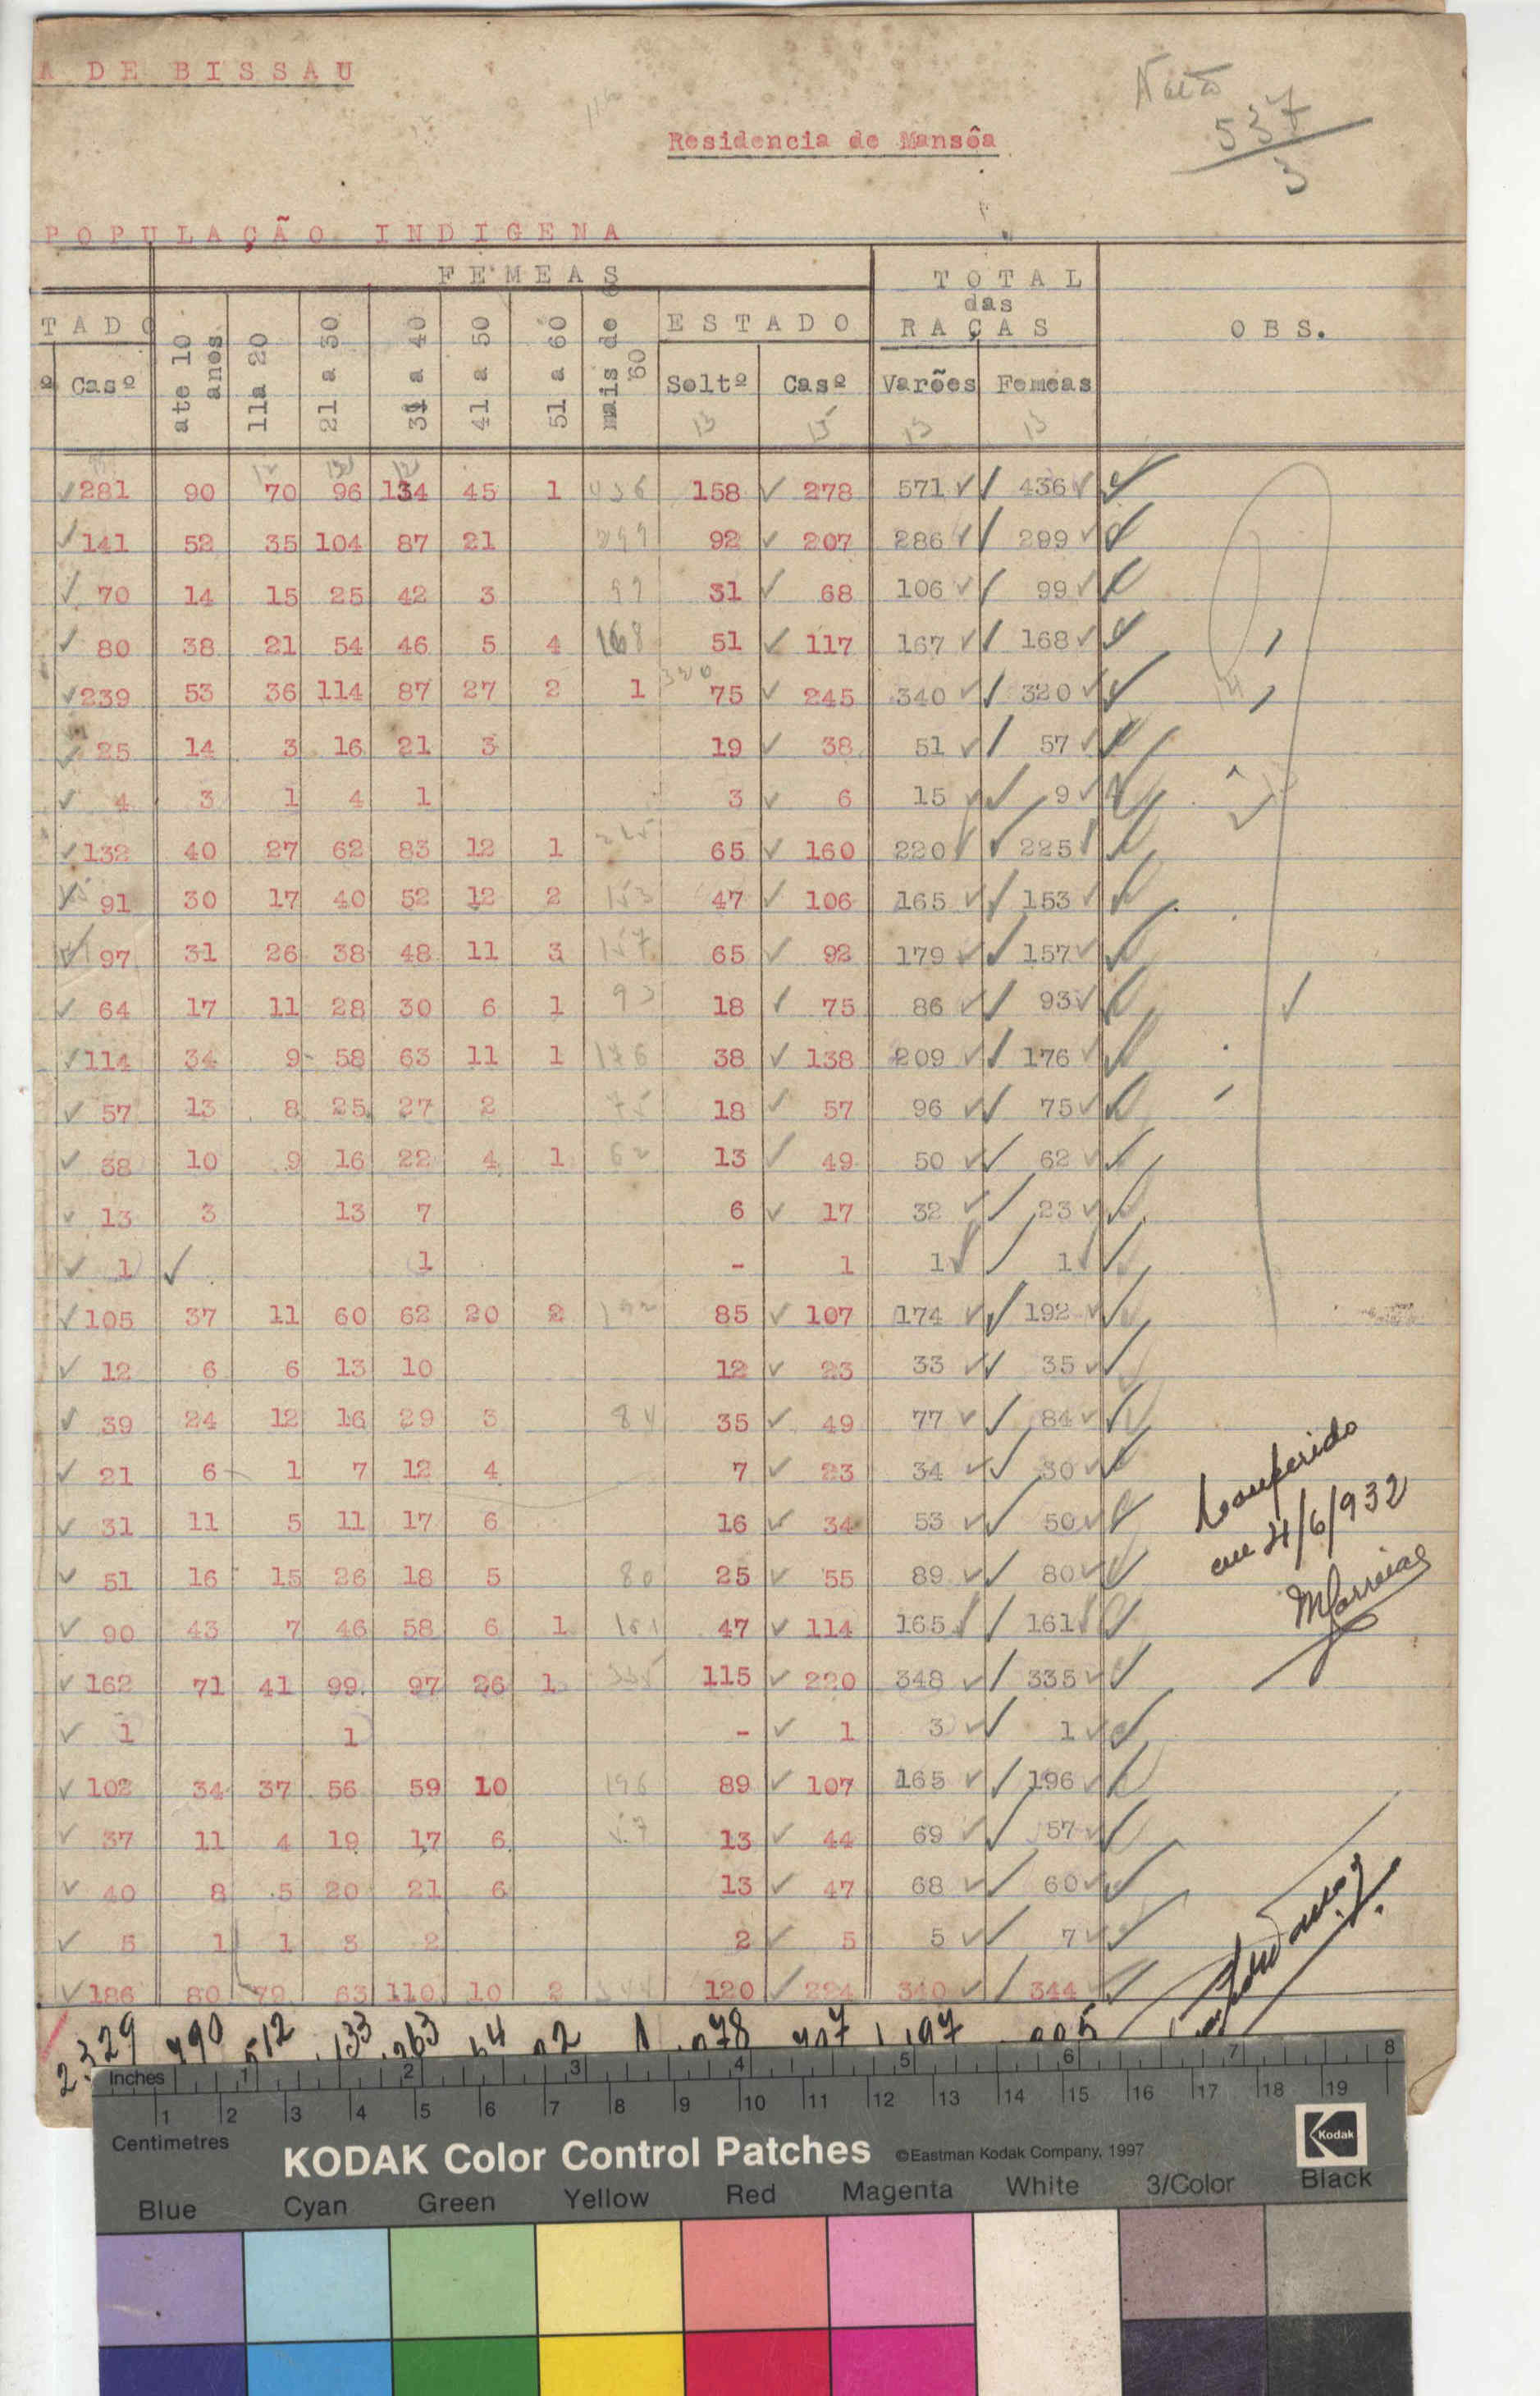 A DE BISSAU
Residencia de Mansôa
537
3
POPULAÇÃO INDIGENA
FEMEAS
TOTAL
das
RAÇAS
OBS.
TADO
ESTADO
º Casº
ate 10 anos
11a 20
21 a 30
31 a 40
41 a 50
51 a 60
mais de 60
Soltº Casº Varões Femeas
13 15 13 13
281 90 70 96 134 45 1 436 158 278 571 436
141 52 35 104 87 21 299 92 207 286 299
70 14 15 25 42 3 99 31 68 106 99
80 38 21 54 46 5 4 168 51 117 167 168
239 53 36 114 87 27 2 1 320 75 245 340 320
25 14 3 16 21 3 19 38 51 57
4 3 1 4 1 3 6 15 9
132 40 27 62 83 12 1 225 65 160 220 225
91 30 17 40 52 12 2 153 47 106 165 153
97 31 26 38 48 11 3 157 65 92 179 157
64 17 11 28 30 6 1 93 18 75 86 93
114 34 9 58 63 11 1 176 38 138 209 176
57 13 8 25 27 2 75 18 57 96 75
38 10 9 16 22 4 1 62 13 49 50 62
13 3 13 7 6 17 32 23
1 1 - 1 1 1
105 37 11 60 62 20 2 192 85 107 174 192
12 6 6 13 10 12 23 33 35
39 24 12 16 29 3 84 35 49 77 84
21 6 1 7 12 4 7 23 34 30
31 11 5 11 17 6 16 34 53 50
51 16 15 26 18 5 80 25 55 89 80
90 43 7 46 58 6 1 161 47 114 165 161
162 71 41 99 97 26 1 335 115 220 348 335
1 1 - 1 3 1
102 34 37 56 59 10 196 89 107 165 196
37 11 4 19 17 6 57 13 44 69 57
40 8 5 20 21 6 13 47 68 60
5 1 1 3 2 2 5 5 7
186 80 79 63 110 10 2 344 120 224 340 344
Conferido
em 4/6/932
MCorreia
2.329 790 512
Inches 1 2 3 4 5 6 7 8
1 2 3 4 5 6 7 8 9 10 11 12 13 14 15 16 17 18 19
Centimetres
KODAK Color Control Patches ©Eastman Kodak Company, 1997 Kodak
Blue Cyan Green Yellow Red Magenta White 3/Color Black